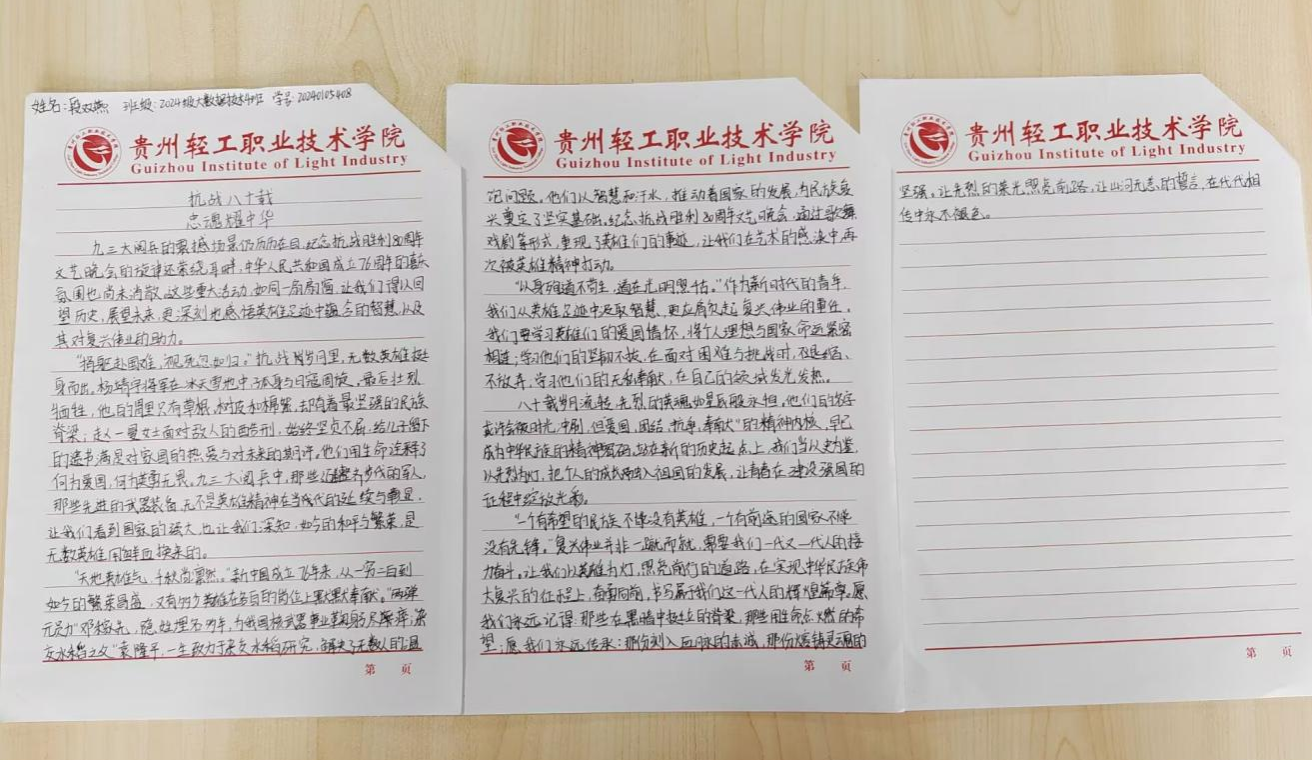 姓名:段双燕 班级:2024级大数据技术4班 学号:20240105408
贵州轻工职业技术学院
Guizhou Institute of Light Industry
抗战八十载
忠魂耀中华
九三大阅兵的震撼场景仍历历在目,纪念抗战胜利80周年
文艺晚会的旋律还萦绕耳畔,中华人民共和国成立76周年的喜庆
氛围也尚未消散。这些重大活动,如同一扇扇窗,让我们得以回
望历史,展望未来,更深刻地感悟英雄足迹中蕴含的智慧,以及
其对复兴伟业的助力。
“捐躯赴国难,视死忽如归。”抗战岁月里,无数英雄挺
身而出。杨靖宇将军在冰天雪地中孑身与日寇周旋,最后壮烈
牺牲,他的胃里只有草根、树皮和棉絮,却有着最坚强的民族
脊梁;赵一曼女士面对敌人的酷刑,始终坚贞不屈,给儿子留下
的遗书满是对家国的热爱与对未来的期许。他们用生命诠释了
何为爱国,何为英勇无畏。九三大阅兵中,那些迈着整齐步伐的军人,
那些先进的武器装备,无不是英雄精神在当代的延续与彰显,
让我们看到国家的强大,也让我们深知,如今的和平与繁荣,是
无数英雄用鲜血换来的。
“天地英雄气,千秋尚凛然。”新中国成立76年来,从一穷二白到
如今的繁荣昌盛,又有许多英雄在各自的岗位上默默奉献。“两弹
元勋”邓稼先,隐姓埋名28年,为我国核武器事业鞠躬尽瘁;“杂
交水稻之父”袁隆平,一生致力于杂交水稻研究,解决了无数人的温
第 页
贵州轻工职业技术学院
Guizhou Institute of Light Industry
饱问题。他们以智慧和汗水,推动着国家的发展,为民族复
兴奠定了坚实基础。纪念抗战胜利80周年文艺晚会,通过歌舞
戏剧等形式,重现了英雄们的事迹,让我们在艺术的感染中再
次被英雄精神打动。
“以身殉道不苟生,道在光明照千古。”作为新时代的青年,
我们从英雄足迹中汲取智慧,更应肩负起复兴伟业的重任。
我们要学习英雄们的爱国情怀,将个人理想与国家命运紧密
相连;学习他们的坚韧不拔,在面对困难与挑战时,不退缩、
不放弃,学习他们的无私奉献,在自己的领域发光发热。
八十载岁月流转,先烈的英魂如星辰般永恒。他们的名字
或许会被时光冲刷,但爱国、团结、抗争、奉献”的精神内核,早已
成为中华民族的精神密码。站在新的历史起点上,我们当以史为鉴,
以先烈为灯,把个人的成长融入祖国的发展,让青春在建设强国的
征程中绽放光彩。
“一个有希望的民族不能没有英雄,一个有前途的国家不能
没有先锋。”复兴伟业并非一蹴而就,需要我们一代又一代人的接
力奋斗。让我们以英雄为灯,照亮前行的道路,在实现中华民族伟
大复兴的征程上,奋勇向前,书写属于我们这一代人的辉煌篇章。愿
我们永远记得:那些在黑暗中挺立的脊梁,那些用生命点燃的希
望;愿我们永远传承:那份刻入血脉的赤诚,那份熔铸灵魂的
第 页
贵州轻工职业技术学院
Guizhou Institute of Light Industry
坚强。让先烈的荣光照亮前路,让山河无恙的誓言,在代代相
传中永不褪色。
第 页